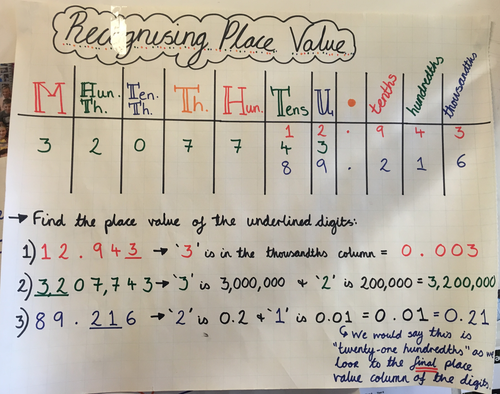 Recognising Place Value
M Hun. Th. Ten. Th. Th. Hun. Tens U. • tenths hundredths thousandths
1 2 . 9 4 3
3 2 0 7 7 4 3
8 9 . 2 1 6
→ Find the place value of the underlined digits:
1) 12.943 → '3' is in the thousandths column = 0.003
2) 3,207,743 → '3' is 3,000,000 & '2' is 200,000 = 3,200,000
3) 89.216 → '2' is 0.2 & '1' is 0.01 = 0.01 = 0.21
↳ We would say this is
"twenty-one hundredths" as we
look to the final place
value column of the digits.